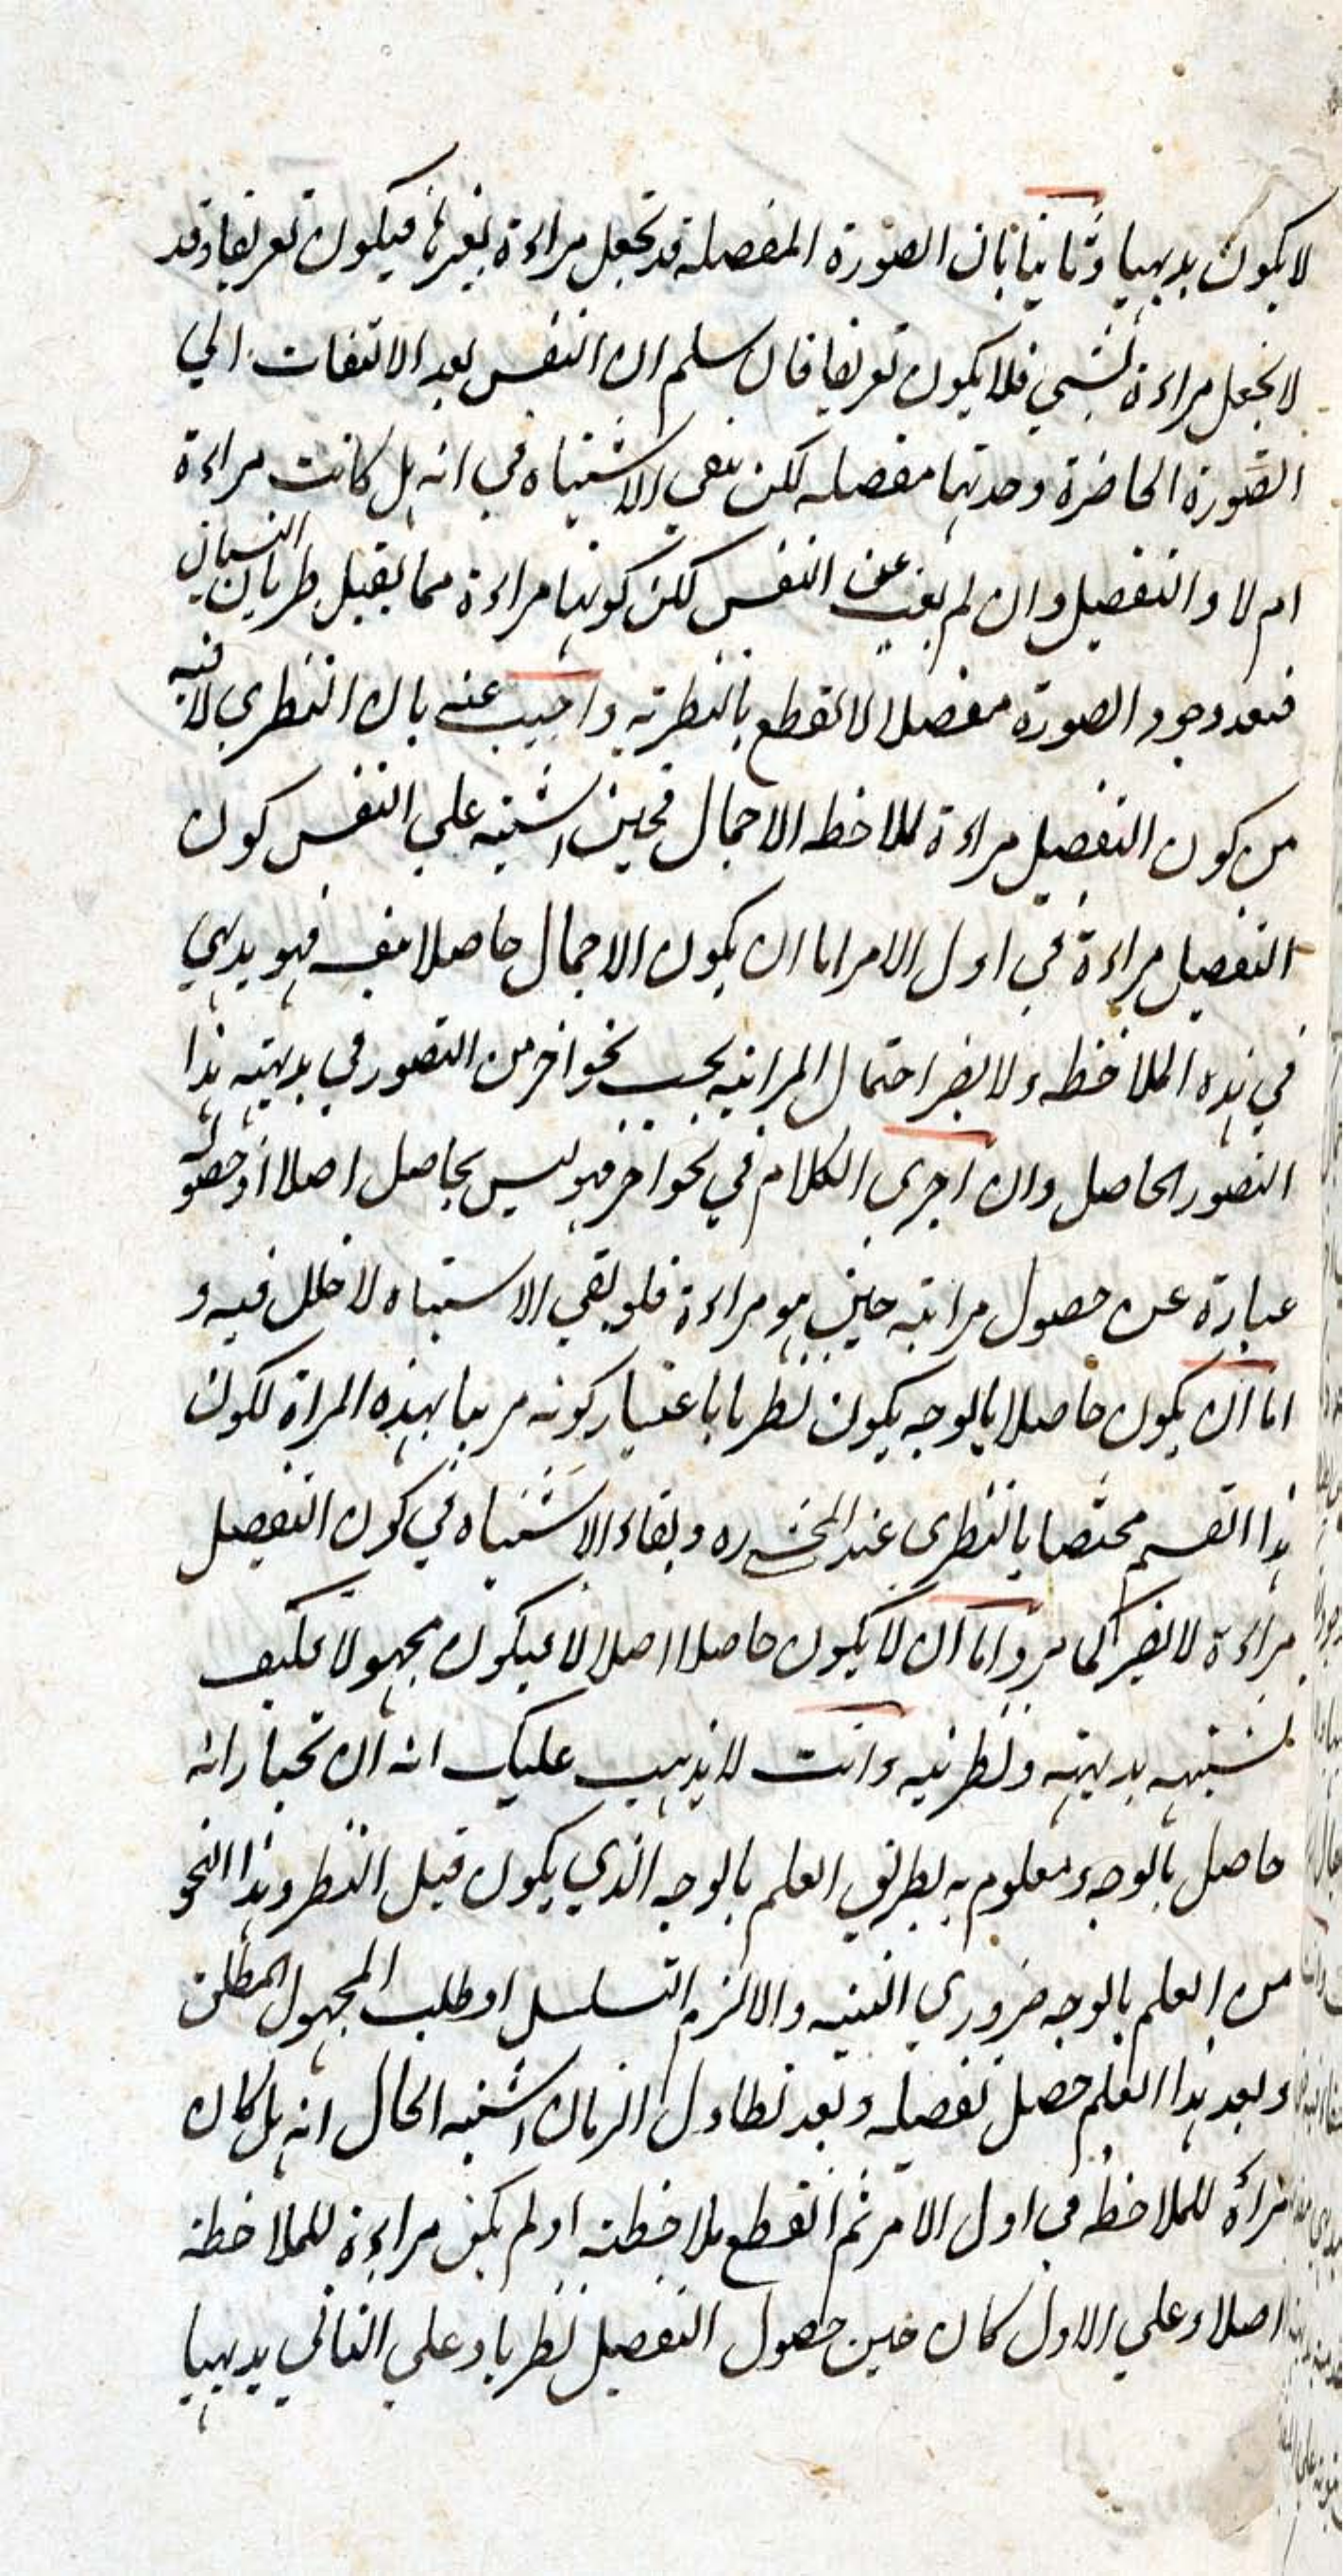 لا يكون بديهيا وثانيا بان الصورة المفصلة قد تجعل مراءة لغيرها فيكون تعريفا وقد
لا تجعل مراءة لشيء فلا يكون تعريفا فان سلم ان النفس بعد الالتفات الي
الصورة الحاضرة وجدتها مفصلة لكن بقي الاشتباه في انه هل كانت مراءة
ام لا والتفصيل وان لم يغب عن النفس لكن كونها مراءة مما يقبل طريان النسيان
فبعد وجود الصورة مفصلا لا نقطع بالنظرية واجيب عنه بان النظري لا فيه
من كون التفصيل مراءة لملاحظة الاجمال فحين اشتبه علي النفس كون
التفصيل مراءة في اول الامر اما ان يكون الاجمال حاصلا بنفسه فهو بديهي
في هذه الملاحظة ولا يضر احتمال المرائية بحسب نحو اخر من التصور في بديهته هذا
التصور الحاصل وان اجري الكلام في نحو اخر فهو ليس بحاصل اصلا اذ حصوله
عبارة عن حصول مرائته حين هو مراءة فلو بقي الاشتباه لا خلل فيه و
اما ان يكون حاصلا بالوجه يكون نظريا باعتبار كونه مرئيا بهذه المراة لكون
هذا القسم مختصا بالنظري عند المحشي ره وبقاء الاشتباه في كون التفصيل
مراءة لا يضر كما مر واما ان لا يكون حاصلا اصلا لا فيكون مجهولا فكيف
تشتبه بديهته ونظريته وانت لا يذهب عليك انه ان نختار انه
حاصل بالوجه ومعلوم به بطريق العلم بالوجه الذي يكون قبل النظر وهذا النحو
من العلم بالوجه ضروري البتة والا لزم التسلسل او طلب المجهول المطلق
وبعد هذا العلم حصل تفصيله وبعد تطاول الزمان اشتبه الحال انه هل كان
مراة للملاحظة في اول الامر ثم انقطع ملاحظته او لم يكن مراءة للملاحظة
اصلا وعلي الاول كان حين حصول التفصيل نظريا وعلي الثاني بديهيا